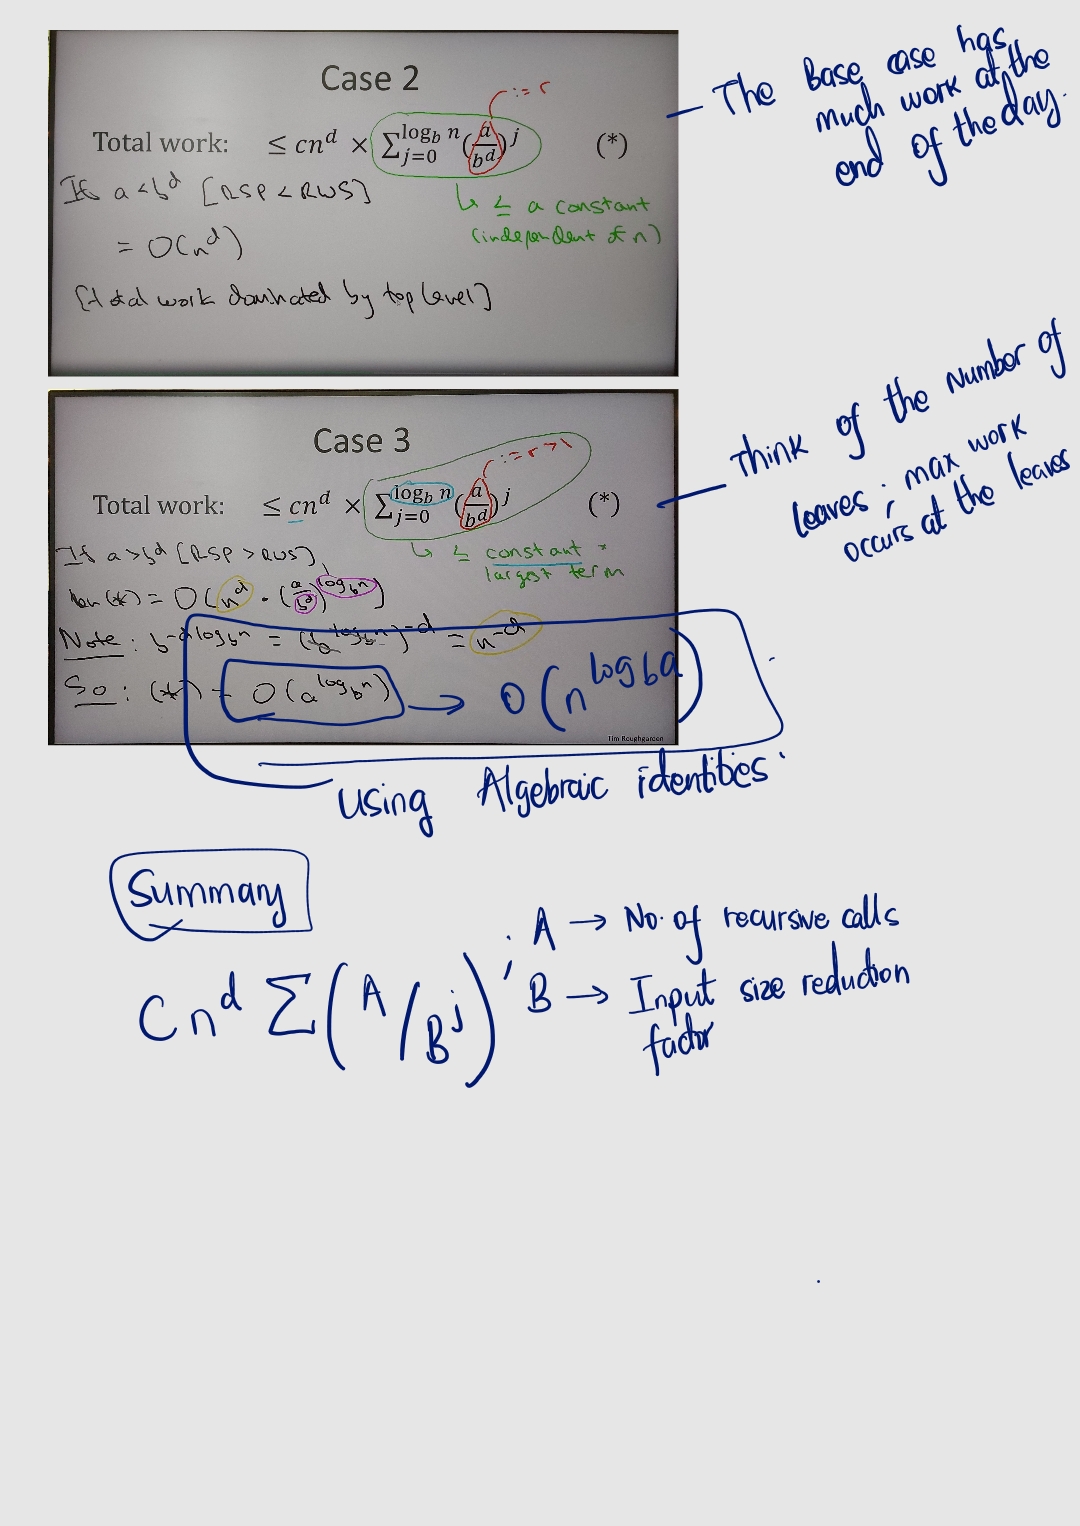 Case 2
:= r
Total work: ≤ cn^d × ∑_{j=0}^{log_b n} (a/b^d)^j (*)
If a < b^d [RSP < RWS]
↳ ≤ a constant
(independent of n)
= O(n^d)
[total work dominated by top level]
The Base case has
much work at the
end of the day.
Case 3
:= r > 1
Total work: ≤ cn^d × ∑_{j=0}^{log_b n} (a/b^d)^j (*)
If a > b^d [RSP > RWS]
↳ ≤ constant *
largest term
(*) = O(n^d · (a/b^d)^{log_b n})
Note: b^{-d log_b n} = (b^{log_b n})^{-d} = n^{-d}
So: (*) = O(a^{log_b n}) → O(n^{log b a})
Tim Roughgarden
Think of the Number of
leaves; max work
occurs at the leaves
using Algebraic identities.
Summary
Cn^d ∑(A/B^j);
A → No. of recursive calls
B → Input size reduction
factor